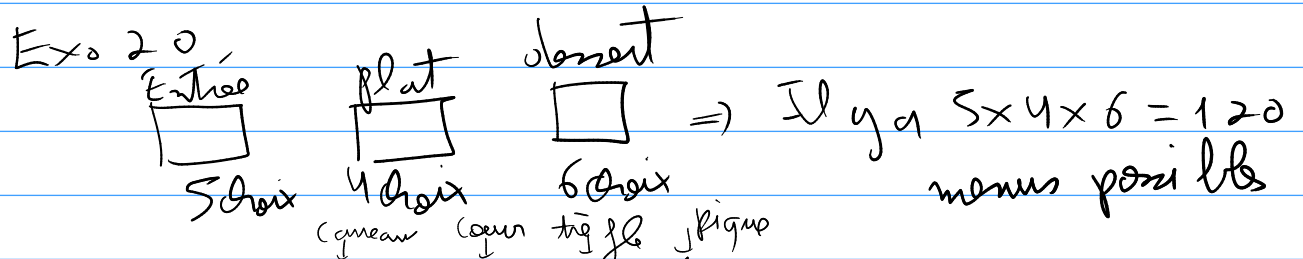 Exo 20
Entrée plat dessert
⇒ Il y a 5×4×6 = 120
5 choix 4 choix 6 choix menus possibles
carreau coeur trèfle pique